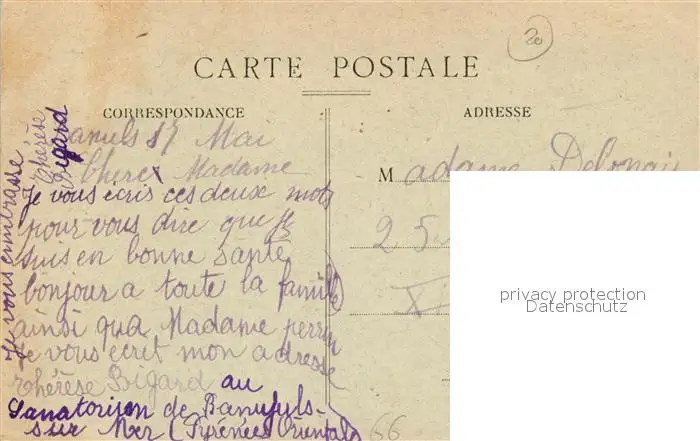 20
CARTE POSTALE
CORRESPONDANCE
ADRESSE
17 Mai
Chere Madame
Je vous écris ces deux mots
pour vous dire que je
suis en bonne santé
bonjour a toute la famille
ainsi qua Madame perrin
Je vous ecrit mon adresse
Thérèse Bigard au
Sanatorium de Banyuls-
sur Mer (Pyrénées Orientals
66
Je vous embrasse
Thérèse
Bigard
Madame
25
privacy protection
Datenschutz